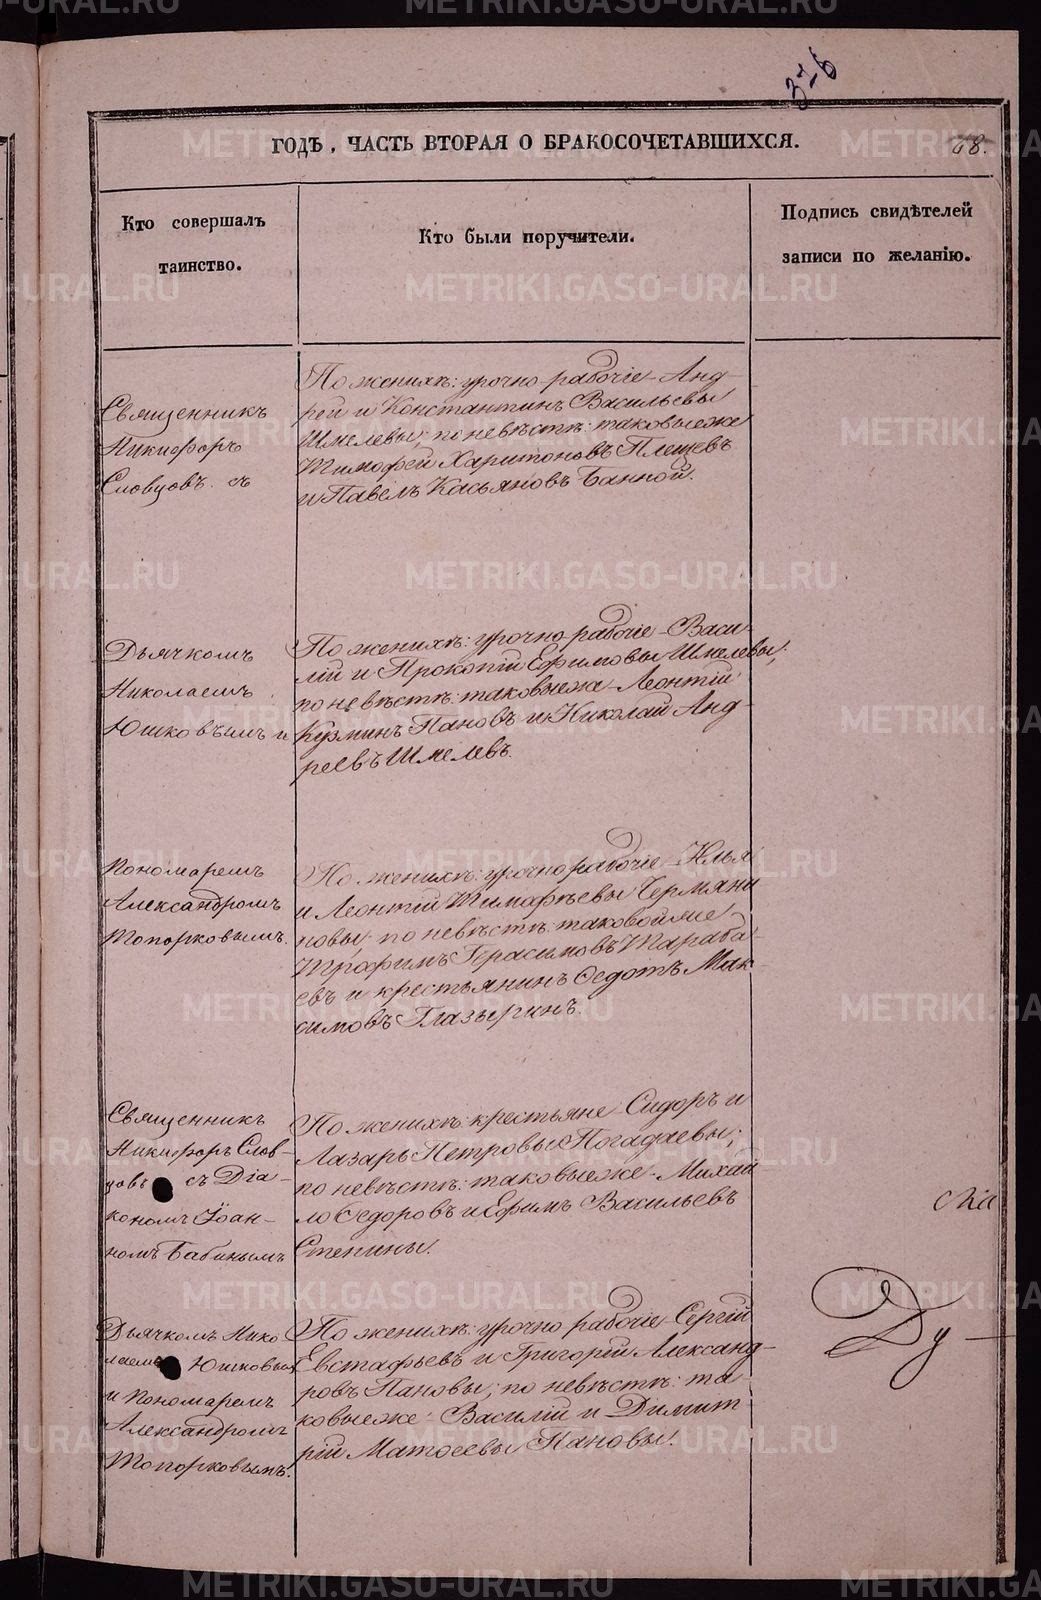 376
ГОДЪ, ЧАСТЬ ВТОРАЯ О БРАКОСОЧЕТАВШИХСЯ.
68.
Кто совершалъ
таинство.
Кто были поручители.
Подпись свидѣтелей
записи по желанію.
Священникъ
Никифоръ
Словцовъ. съ
По женихѣ: урочно-рабочіе Анд-
рей и Константинъ Васильевы
Шмелевы; по невѣстѣ: таковые же
Тимофей Харитоновъ Плещевъ
и Павелъ Касьяновъ Банной.
Дьячкомъ
Николаемъ
Юшковымъ и
По женихѣ: урочно рабочіе Васи-
лій и Прокопій Ефимовы Шмелевы;
по невѣстѣ: таковые же Леонтій
Кузминъ Пановъ и Николай Анд-
реевъ Шмелевъ.
Пономаремъ
Александромъ
Топорковымъ.
По женихѣ: урочно рабочіе Илья
и Леонтій Тимафѣевы Чермяни
новы; по невѣстѣ: таковой же
Трофимъ Герасимовъ Тараба
евъ и крестьянинъ Федотъ Мак-
симовъ Глазыринъ.
Священникъ
Никифоръ Слов-
цовъ съ Діа-
кономъ Іоан-
номъ Бабинымъ
По женихѣ: крестьяне Сидоръ и
Лазарь Петровы Погадаевы;
по невѣстѣ: таковые же Михай
ло Федоровъ и Ефимъ Васильевъ
Степины.
Дьячкомъ Нико-
лаемъ Юшковымъ
и Пономаремъ
Александромъ
Топорковымъ.
По женихѣ: урочно рабочіе Сергій
Евстафьевъ и Григорій Александ-
ровъ Пановы; по невѣстѣ: та-
ковые же Василій и Димит-
рій Матвеевы Пановы.
Ду-
METRIKI.GASO-URAL.RU